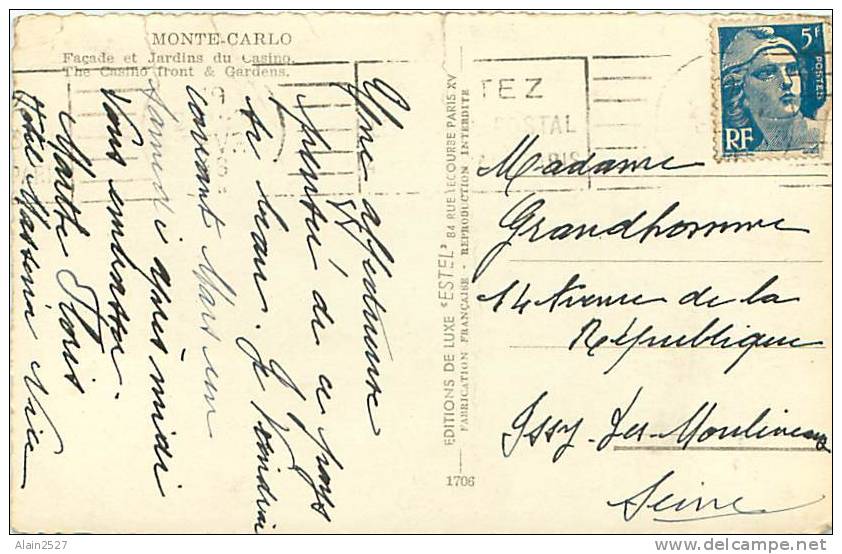 MONTE-CARLO
Façade et Jardins du Casino.
The Casino front & Gardens.
Une affectueuse
pensée de ce pays
si beau. Je viendrai
courant Mars un
Samedi après-midi
Vous embrasse.
Marthe Floris
Hôtel Masséna Nice
EDITIONS DE LUXE "ESTEL" 84 RUE LECOURBE PARIS XV
FABRICATION FRANÇAISE - REPRODUCTION INTERDITE
1706
TEZ
POSTAL
5F
POSTES
RF
Madame
Grandhomme
14 Avenue de la
République
Issy-Les-Moulineaux
Seine
Alain2527
http://www.delcampe.net